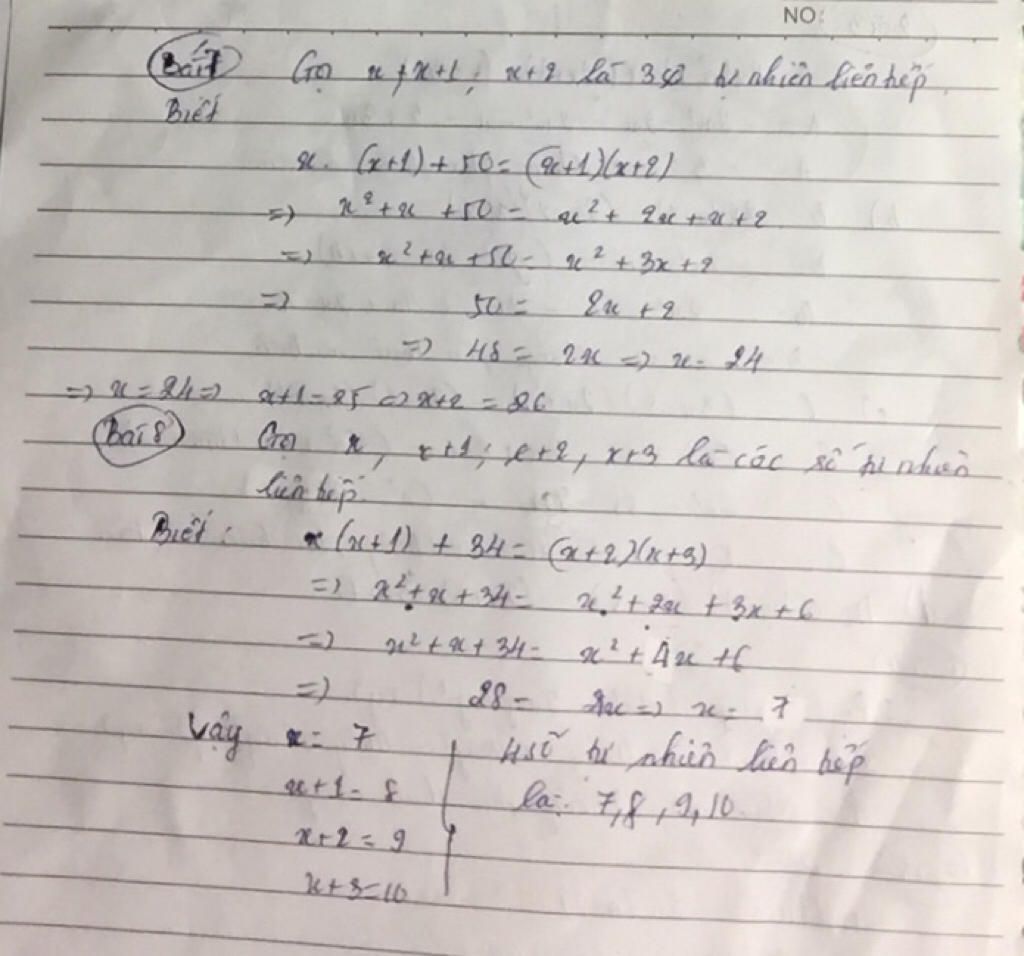 NO:
Bài 7 Gọi x, x+1, x+2 là 3 số tự nhiên liên tiếp
Biết
x. (x+1) + 50 = (x+1)(x+2)
=> x² + x + 50 = x² + 2x + x + 2
=> x² + x + 50 = x² + 3x + 2
=> 50 = 2x + 2
=> 48 = 2x => x = 24
=> x = 24 => x+1 = 25 => x+2 = 26
Bài 8 Gọi x, x+1; x+2, x+3 là các số tự nhiên
liên tiếp.
Biết: x(x+1) + 34 = (x+2)(x+3)
=> x² + x + 34 = x² + 2x + 3x + 6
=> x² + x + 34 = x² + 4x + 6
=> 28 = x => x = 7
Vậy x = 7
x+1 = 8
x+2 = 9
x+3 = 10
4 số tự nhiên liên tiếp
là: 7, 8, 9, 10.